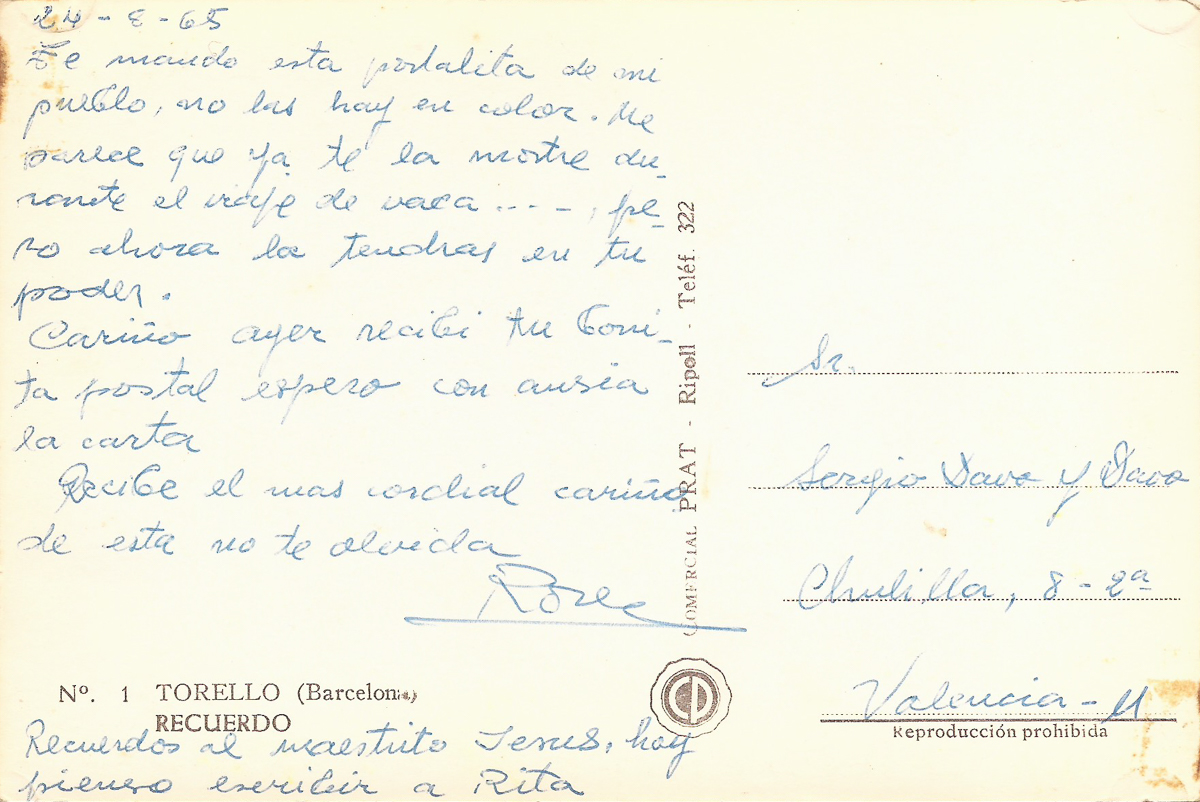 24-8-65
Te mando esta postalita de mi
pueblo, no las hay en color. Me
parece que ya te la mostre du-
rante el viaje de vaca ...-, pe-
ro ahora la tendras en tu
poder.
Cariño ayer recibi tu boni-
ta postal espero con ansia
la carta
Recibe el mas cordial cariño
de esta no te olvida
Rosa
Nº. 1 TORELLO (Barcelona)
RECUERDO
Recuerdos al maestrito Jesus, hoy
pienso escribir a Rita
COMERCIAL PRAT - Ripoll - Teléf. 322
CP
Sr.
Sergio Davo y Davo
Chulilla, 8-2ª
Valencia-11
Reproducción prohibida